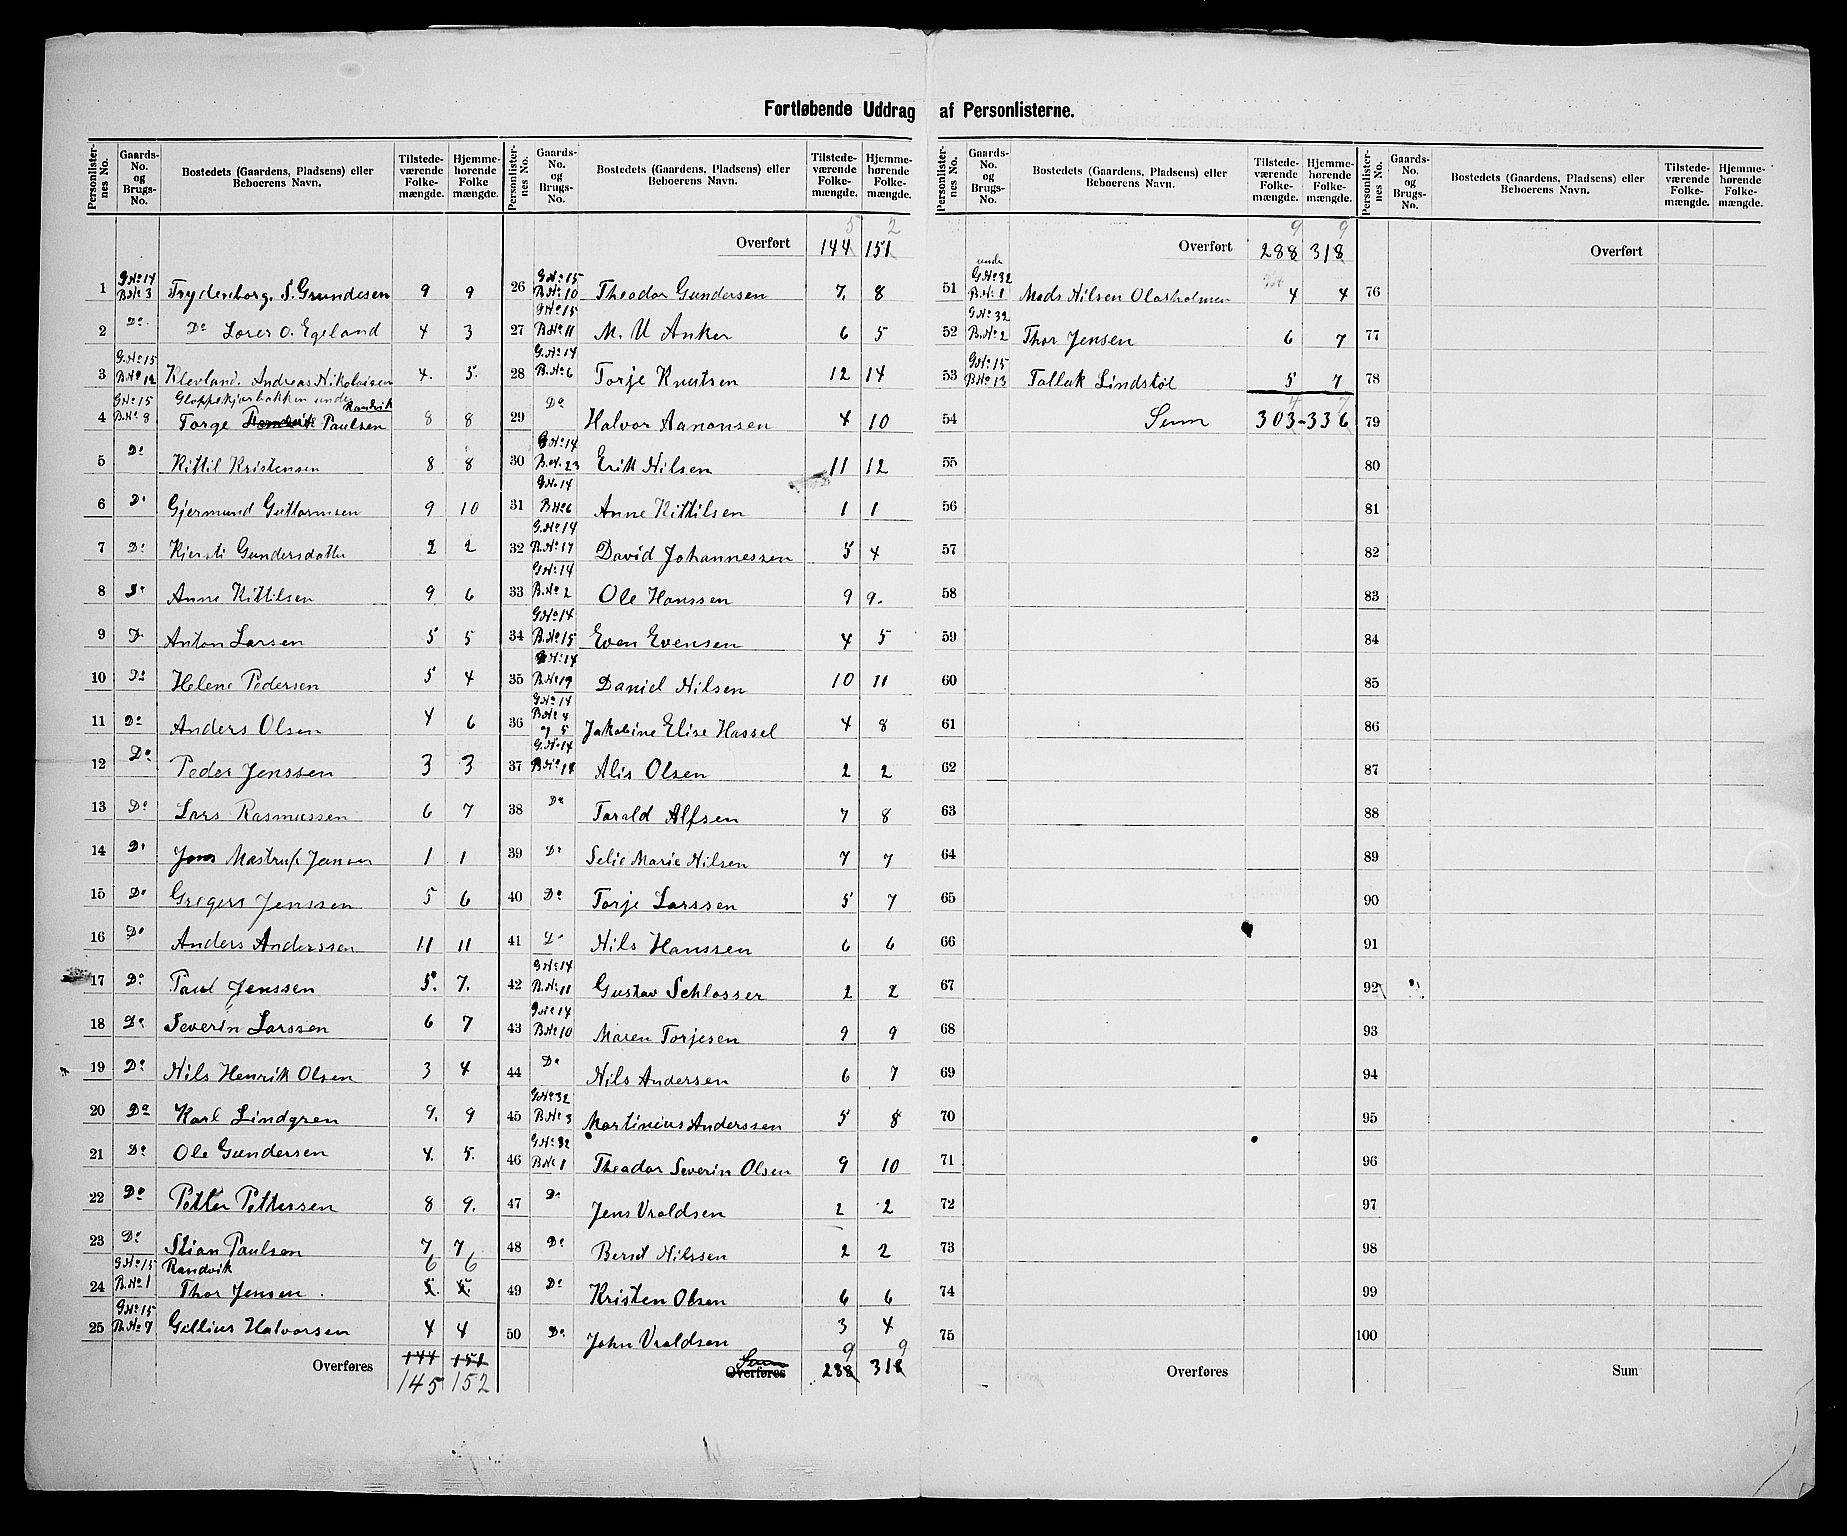 Fortløbende Uddrag af Personlisterne.
Personlister-nes No. | Gaards-No. og Brugs-No. | Bostedets (Gaardens, Pladsens) eller Beboerens Navn. | Tilstede-værende Folke-mængde. | Hjemme-hørende Folke mængde.
1 G.No 14 B.No 3 Frydenborg. S. Grundesen 9 9
2 Do Do Lorer O. Egeland 4 3
3 G.No 15 B.No 12 Klevland. Andreas Nikolaisen 4. 5.
4 G.No 15 B.No 8 Gloppekjærbakken under Randvik
Torge Paulsen 8 8
5 Do Kittil Kristensen 8 8
6 Do Gjermund Guttormsen 9 10
7 Do Kjersti Gundersdatter 2 2
8 Do Anne Kittilsen 9 6
9 Do Anton Larsen 5 5
10 Do Helene Pedersen 5 4
11 Do Anders Olsen 4 6
12 Do Peder Jenssen 3 3
13 Do Lars Rasmussen 6 7
14 Do Jens Mastrup Jensen 1 1
15 Do Gregers Jenssen 5 6
16 Do Anders Anderssen 11 11
17 Do Paul Jenssen 5. 7.
18 Do Severin Larssen 6 7
19 Do Nils Henrik Olsen 3 4
20 Do Karl Lindgren 9. 9
21 Do Ole Gundersen 4. 5.
22 Do Petter Pettersen 8 9.
23 Do Stian Paulsen 7 7
24 G.No 15 B.No 1 Randvik
Thor Jensen. 6 6
5. 5.
25 G.No 15 B.No 7 Gellius Halvorsen 4 4
Overføres 144 151
145 152
Personlister-nes No. | Gaards-No. og Brugs-No. | Bostedets (Gaardens, Pladsens) eller Beboerens Navn. | Tilstede-værende Folke-mængde. | Hjemme-hørende Folke-mængde.
5 2
Overført 144 151
26 G.No 15 B.No 10 Theodor Gundersen 7. 8
27 G.No 15 B.No 11 M. U Anker 6 5
28 G.No 14 B.No 6 Torje Knutsen 12 14
29 Do Halvor Aanonsen 4 10
30 G.No 14 B.No. 23 Erik Nilsen 11 12
31 G.No 14 B.No 6 Anne Kittilsen 1 1
32 G.No 14 B.No 17 David Johannessen 5 4
33 G.No 14 B.No 2 Ole Hanssen 9 9.
34 G.No 14 B.No 15 Even Evensen 4 5
35 G.No 14 B.No 19 Daniel Nilsen 10 11
36 G.No 14 B.No 4 og 5 Jakobine Elise Hassel 4 8
37 G.No 14 B.No 18 Alis Olsen 2 2
38 Do Tarald Alfsen 7 8
39 Do Selie Marie Nilsen 7 7
40 Do Torje Larssen 5 7
41 Do Nils Hanssen 6 6
42 G.No 14 B.No 11 Gustav Schlosser 2 2
43 G.No 14 B.No 10 Maren Torjesen 9 9
44 Do Nils Andersen 6 7
45 G.No 32 B.No 3 Martinius Anderssen 5 8
46 G.No 32 B.No 1 Theodor Severin Olsen 9 10
47 Do Jens Vraldsen 2 2
48 Do Bernt Nilssen 2 2
49 Do Kristen Olsen 6 6
50 Do John Vraldsen 3 4
Sum 9 9
Overføres 288 318
Personlister-nes No. | Gaards-No. og Brugs-No. | Bostedets (Gaardens, Pladsens) eller Beboerens Navn. | Tilstede-værende Folke-mængde. | Hjemme-hørende Folke-mængde.
9 9
Overført 288 318
51 unde G.No 32 B.No 1 Mads Nilsen Olasholmen 4 4
52 G.No 32 B.No 2 Thor Jensen 6 7
53 G.No 15 B.No 13 Tallak Lindstøl 5 7
4 7
54 Sum 303-336
55
56
57
58
59
60
61
62
63
64
65
66
67
68
69
70
71
72
73
74
75
Overføres
Personlister-nes No. | Gaards-No. og Brugs-No. | Bostedets (Gaardens, Pladsens) eller Beboerens Navn. | Tilstede-værende Folke-mængde. | Hjemme-hørende Folke-mængde.
Overført
76
77
78
79
80
81
82
83
84
85
86
87
88
89
90
91
92
93
94
95
96
97
98
99
100
Sum